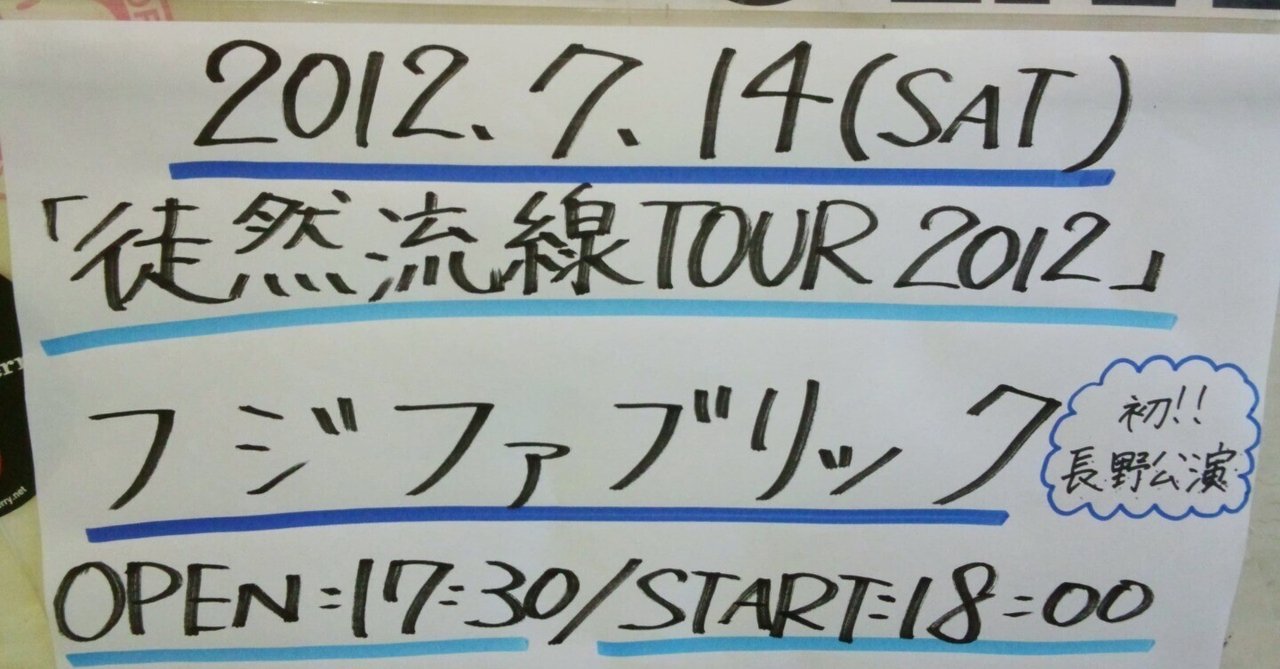 2012.7.14(SAT)
「徒然流線TOUR 2012」
フジファブリック
初!!
長野公演
OPEN:17:30/START:18:00